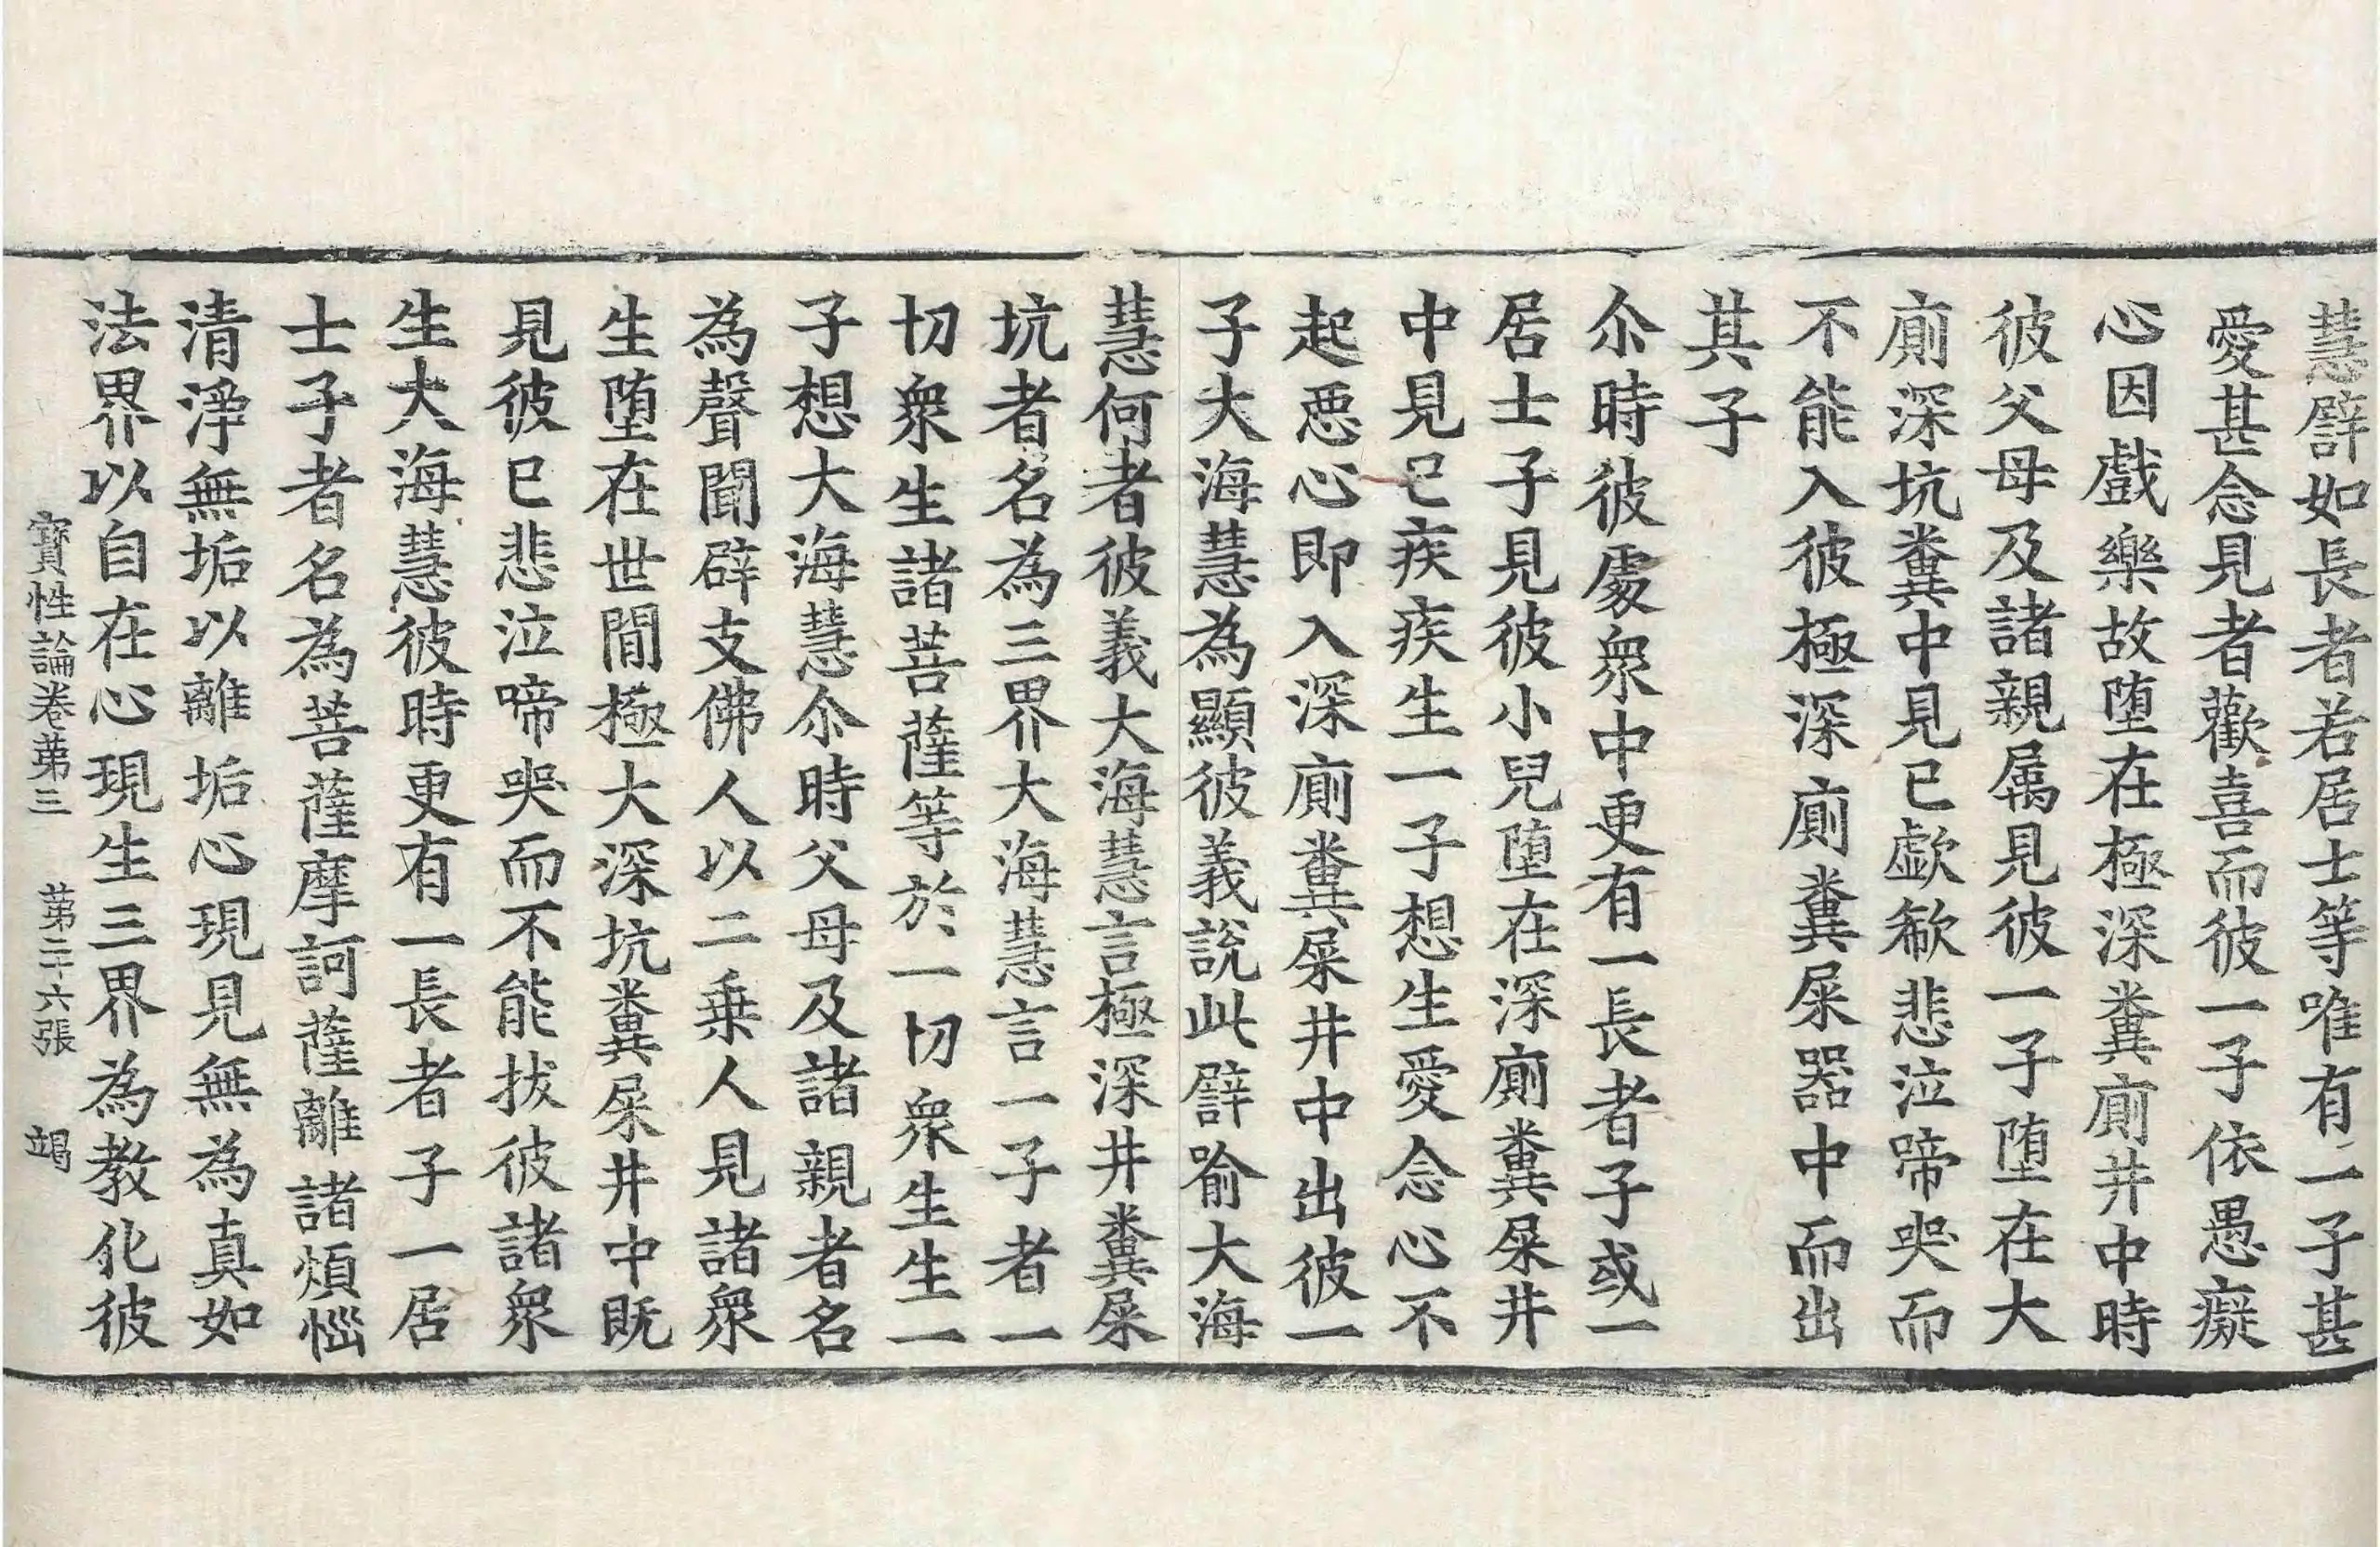 慧譬如長者若居士等唯有一子甚
愛甚念見者歡喜而彼一子依愚癡
心因戲樂故墮在極深糞廁井中時
彼父母及諸親属見彼一子墮在大
廁深坑糞中見已歔欷悲泣啼哭而
不能入彼極深廁糞屎器中而出
其子
尒時彼處衆中更有一長者子或一
居士子見彼小兒墮在深廁糞屎井
中見已疾疾生一子想生愛念心不
起惡心即入深廁糞屎井中出彼一
子大海慧為顯彼義說此譬喻大海
慧何者彼義大海慧言極深井糞屎
坑者名為三界大海慧言一子者一
切衆生諸菩薩等於一切衆生生一
子想大海慧尒時父母及諸親者名
為聲聞辟支佛人以二乗人見諸衆
生墮在世間極大深坑糞屎井中既
見彼已悲泣啼哭而不能拔彼諸衆
生大海慧彼時更有一長者子一居
士子者名為菩薩摩訶薩離諸煩惱
清淨無垢以離垢心現見無為真如
法界以自在心現生三界為教化彼
寶性論卷第三　第二十六張　竭